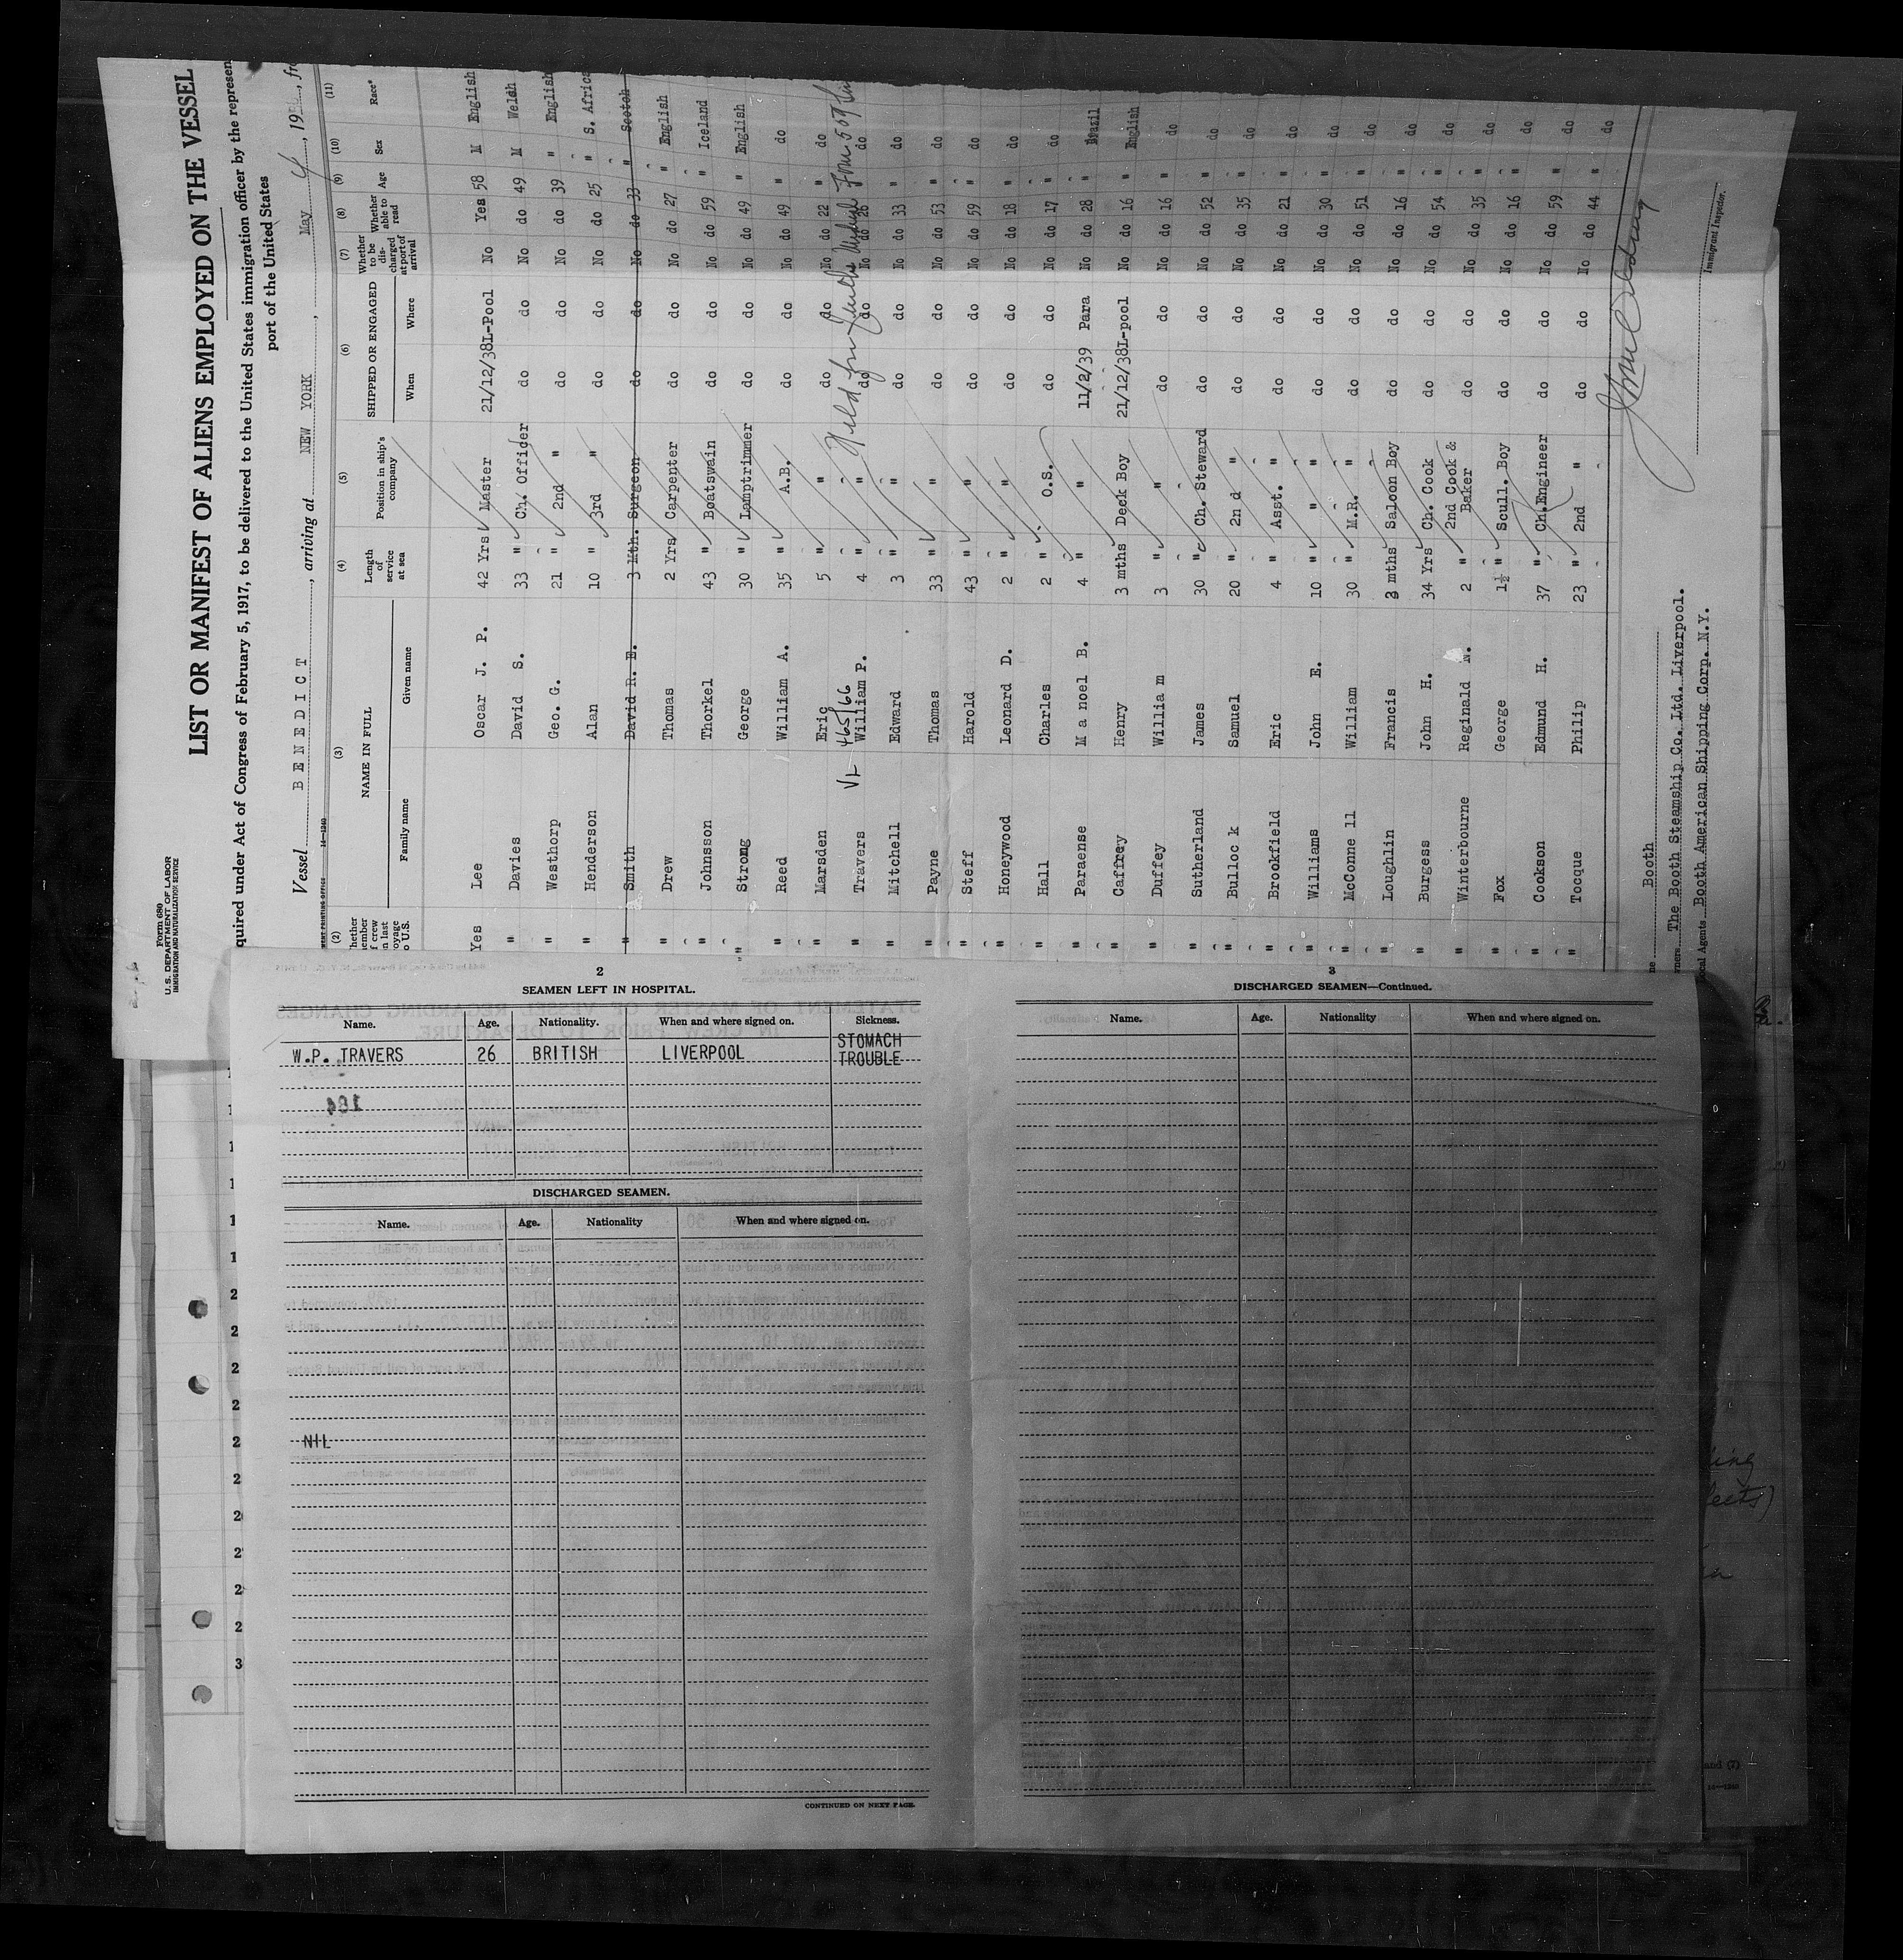 Form 680
U.S. DEPARTMENT OF LABOR
IMMIGRATION AND NATURALIZATION SERVICE
LIST OR MANIFEST OF ALIENS EMPLOYED ON THE VESSEL
quired under Act of Congress of February 5, 1917, to be delivered to the United States immigration officer by the represen
port of the United States
Vessel BENEDICT, arriving at NEW YORK, May 4, 19
(2) (3) (4) (5) (6) (7) (8) (9) (10) (11)
NAME IN FULL
Family name Given name
Length of service at sea
Position in ship's company
SHIPPED OR ENGAGED
When Where
Whether to be discharged at port of arrival
Whether able to read
Age Sex Race*
Yes Lee Oscar J. P. 42 Yrs Master 21/12/38 L-Pool No Yes 58 M English
" Davies David S. 33 " Ch. Officer do do No do 49 M Welsh
" Westhorp Geo. G. 21 " 2nd " do do No do 39 " English
" Henderson Alan 10 " 3rd " do do No do 25 " S. Africa
" Smith David R. E. 3 Mth. Surgeon do do No do 33 " Scotch
" Drew Thomas 2 Yrs Carpenter do do No do 27 " English
" Johnsson Thorkel 43 " Boatswain do do No do 59 " Iceland
" Strong George 30 " Lamptrimmer do do No do 49 " English
" Reed William A. 35 " A.B. do do No do 49 " do
" Marsden Eric 5 " " do do No do 22 " do
VL 465/66
" Travers William P. 4 " " do do No do 26 do
" Mitchell Edward 3 " " do do No do 33 " do
" Payne Thomas 33 " " do do No do 53 " do
" Steff Harold 43 " do do No do 59 " do
" Honeywood Leonard D. 2 " " do do No do 18 " do
" Hall Charles 2 " O.S. do do No do 17 " do
" Paraense M a noel B. 4 " " 11/2/39 Para No do 28 " Brazil
" Caffrey Henry 3 mths Deck Boy 21/12/38 L-pool No do 16 " English
" Duffey Willia m 3 " " do do No do 16 " do
" Sutherland James 30 " Ch. Steward do do No do 52 " do
" Bulloc k Samuel 20 " 2n d " do do No do 35 " do
" Brookfield Eric 4 " Asst. " do do No do 21 " do
" Williams John E. 10 " " " do do No do 30 " do
" McConne ll William 30 " M.R. " do do No do 51 " do
" Loughlin Francis 3 mths Saloon Boy do do No do 16 " do
" Burgess John H. 34 Yrs Ch. Cook do do No do 54 " do
" Winterbourne Reginald N. 2 " 2nd Cook & Baker do do No do 35 " do
" Fox George 1½ " Scull. Boy do do No do 16 " do
" Cookson Edmund H. 37 " Ch. Engineer do do No do 59 " do
" Tocque Philip 23 " 2nd " do do No do 44 " do
Booth
The Booth Steamship Co. Ltd. Liverpool.
Booth American Shipping Corp. N.Y.
Immigrant Inspector.
2
SEAMEN LEFT IN HOSPITAL.
Name. Age. Nationality. When and where signed on. Sickness.
W.P. TRAVERS 26 BRITISH LIVERPOOL STOMACH TROUBLE
DISCHARGED SEAMEN.
Name. Age. Nationality When and where signed on.
NIL
CONTINUED ON NEXT PAGE.
3
DISCHARGED SEAMEN—Continued.
Name. Age. Nationality When and where signed on.
and (7)